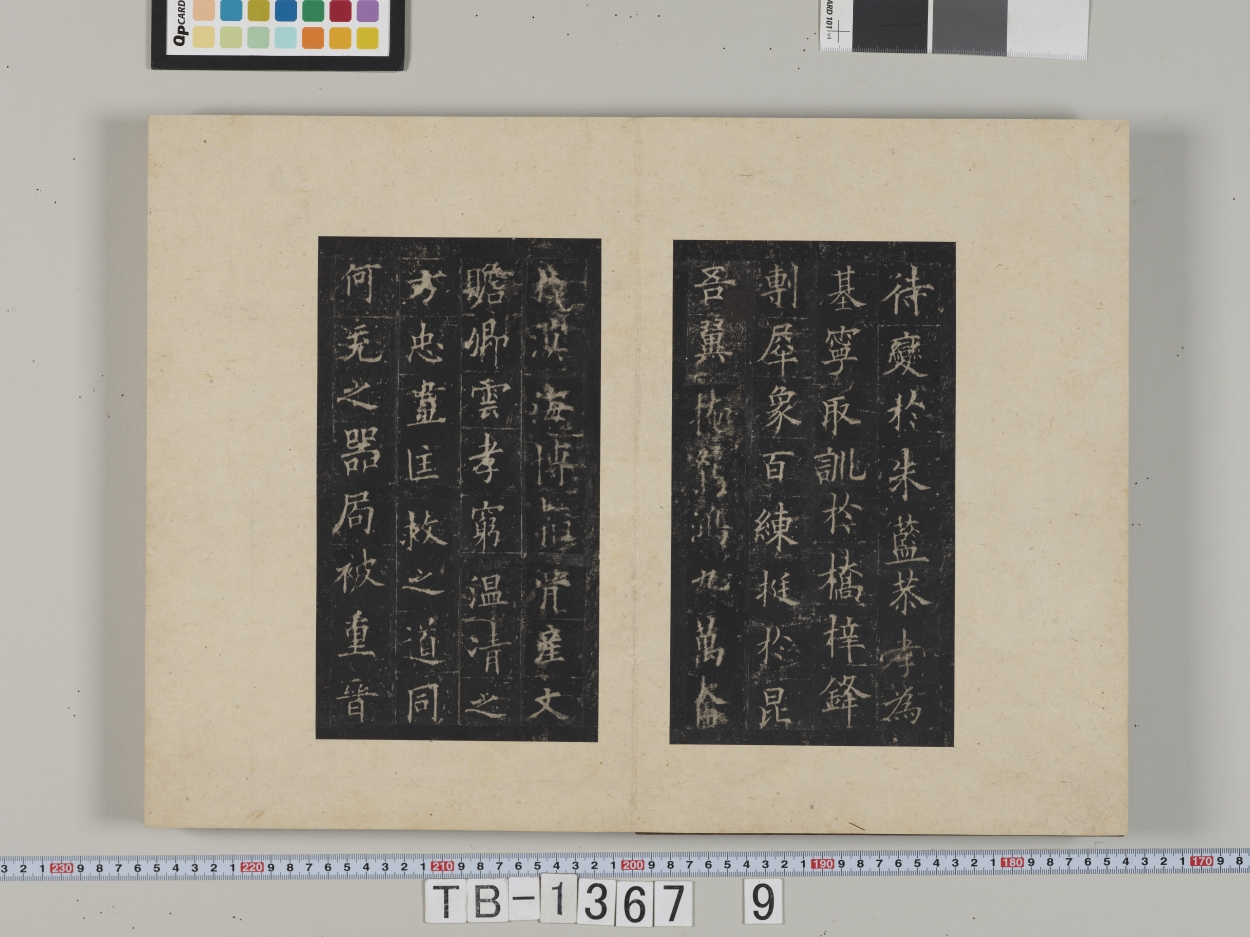 待變於朱藍恭孝為
基寧取訓於橋梓鋒
剸犀象百練挺於昆
吾翼九萬
海骨產文
瞻卿雲孝窮温凊之
方忠盡匡救之道同
何充之器局被重晉
QpCARD
3 2 1 230 9 8 7 6 5 4 3 2 1 220 9 8 7 6 5 4 3 2 1 210 9 8 7 6 5 4 3 2 1 200 9 8 7 6 5 4 3 2 1 190 9 8 7 6 5 4 3 2 1 180 9 8 7 6 5 4 3 2 1 170 9 8
TB-1367 9